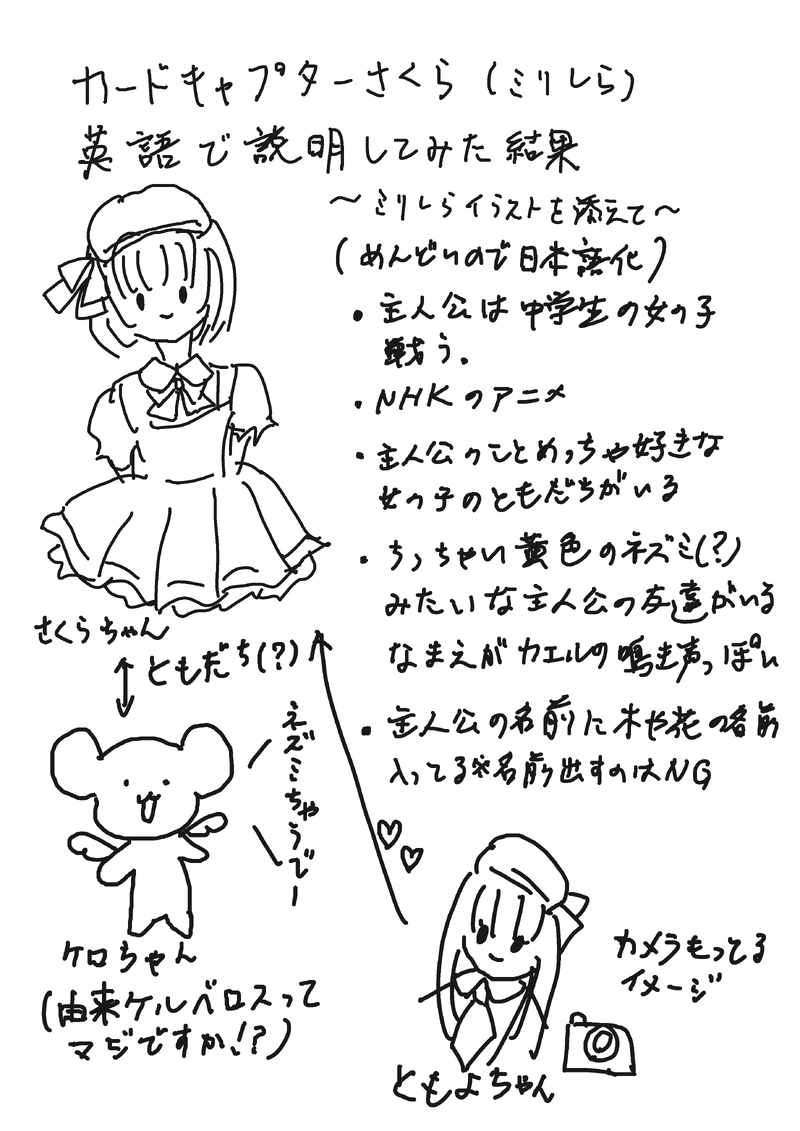 カードキャプターさくら（ミリしら）
英語で説明してみた結果
〜ミリしらイラストを添えて〜
（めんどいので日本語化）
・主人公は中学生の女の子
戦う。
・NHKのアニメ
・主人公のことめっちゃ好きな
女の子のともだちがいる
・ちっちゃい黄色のネズミ(?)
みたいな主人公の友達がいる
なまえがカエルの鳴き声っぽい
・主人公の名前に木や花の名前
入ってる※名前出すのはNG
さくらちゃん
ともだち(?)
ネズミちゃうでー
ケロちゃん
（由来ケルベロスって
マジですか!?）
カメラもってる
イメージ
ともよちゃん